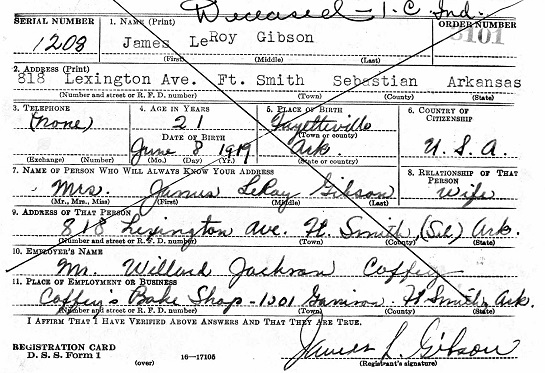 Deceased - I.C. Ind.
SERIAL NUMBER 1. NAME (Print) ORDER NUMBER
1208 James LeRoy Gibson 3101
(First) (Middle) (Last)
2. ADDRESS (Print)
818 Lexington Ave. Ft. Smith Sebastian Arkansas
(Number and street or R. F. D. number) (Town) (County) (State)
3. TELEPHONE 4. AGE IN YEARS 5. PLACE OF BIRTH 6. COUNTRY OF CITIZENSHIP
(none) 21 Fayetteville
DATE OF BIRTH (Town or county)
June 8 1919 Ark U. S. A.
(Exchange) (Number) (Mo.) (Day) (Yr.) (State or country)
7. NAME OF PERSON WHO WILL ALWAYS KNOW YOUR ADDRESS 8. RELATIONSHIP OF THAT PERSON
Mrs. James LeRoy Gibson Wife
(Mr., Mrs., Miss) (First) (Middle) (Last)
9. ADDRESS OF THAT PERSON
818 Lexington Ave. Ft. Smith (Seb) Ark.
(Number and street or R. F. D. number) (Town) (County) (State)
10. EMPLOYER'S NAME
Mr. Willard Jackson Coffey
11. PLACE OF EMPLOYMENT OR BUSINESS
Coffey's Bake Shop - 1201 Garrison. Ft Smith, Ark.
(Number and street or R. F. D. number) (Town) (County) (State)
I AFFIRM THAT I HAVE VERIFIED ABOVE ANSWERS AND THAT THEY ARE TRUE.
REGISTRATION CARD
D. S. S. Form 1 (over) 16—17105
James L. Gibson
(Registrant's signature)